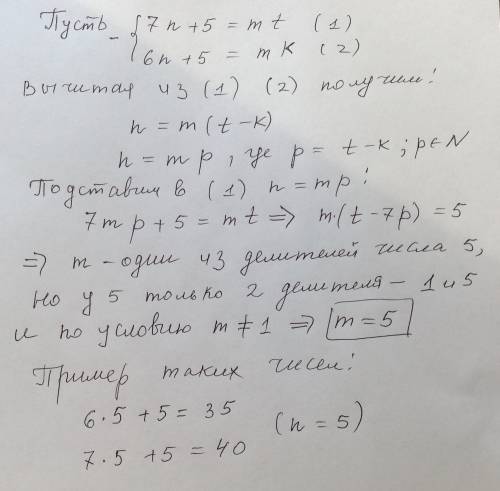 Пусть { 7n + 5 = mt (1)
6n + 5 = mк (2)
Вычитая из (1) (2) получим:
n = m(t - к)
n = mp, где p = t - к; p ∈ N
Подставим в (1) n = mp:
7mp + 5 = mt ⇒ m·(t - 7p) = 5
⇒ m - один из делителей числа 5,
но у 5 только 2 делителя - 1 и 5
и по условию m ≠ 1 ⇒ m = 5
Пример таких чисел:
6·5 + 5 = 35
(n = 5)
7·5 + 5 = 40